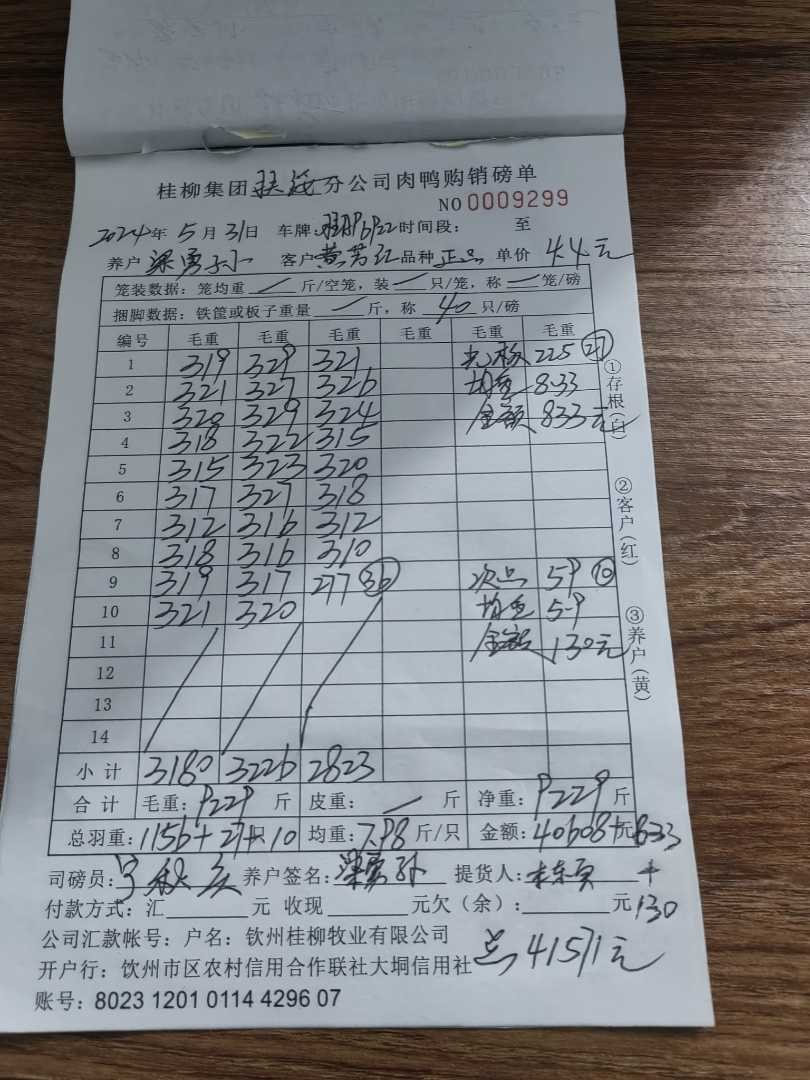 桂柳集团扶绥分公司肉鸭购销磅单
NO 0009299
2024年5月31日 车牌: 时间段: 至
养户 客户 黄芳红 品种 正品 单价 4.4元
笼装数据: 笼均重 — 斤/空笼, 装 — 只/笼, 称 — 笼/磅
捆脚数据: 铁筐或板子重量 — 斤, 称 40 只/磅
编号 毛重 毛重 毛重 毛重 毛重 毛重
1 319 329 321 225 27
2 321 327 326 均重 8.33
3 320 329 324 金额 833元
4 318 322 315
5 315 323 320
6 317 327 318
7 312 316 312
8 318 316 310
9 319 317 277 36 次品 59 10
10 321 320 均重 5.9
11 金额 130元
12
13
14
小计 3180 3226 2823
合计 毛重: 9229 斤 皮重: — 斤 净重: 9229 斤
总羽重: 1156+27+10 只 均重: 7.98 斤/只 金额: 40608 元+833
司磅员: 养户签名: 提货人: +
付款方式: 汇 元 收现 元欠(余): 元 130
公司汇款帐号: 户名: 钦州桂柳牧业有限公司
总41571元
开户行: 钦州市区农村信用合作联社大垌信用社
账号: 8023 1201 0114 4296 07
①存根(白)
②客户(红)
③养户(黄)